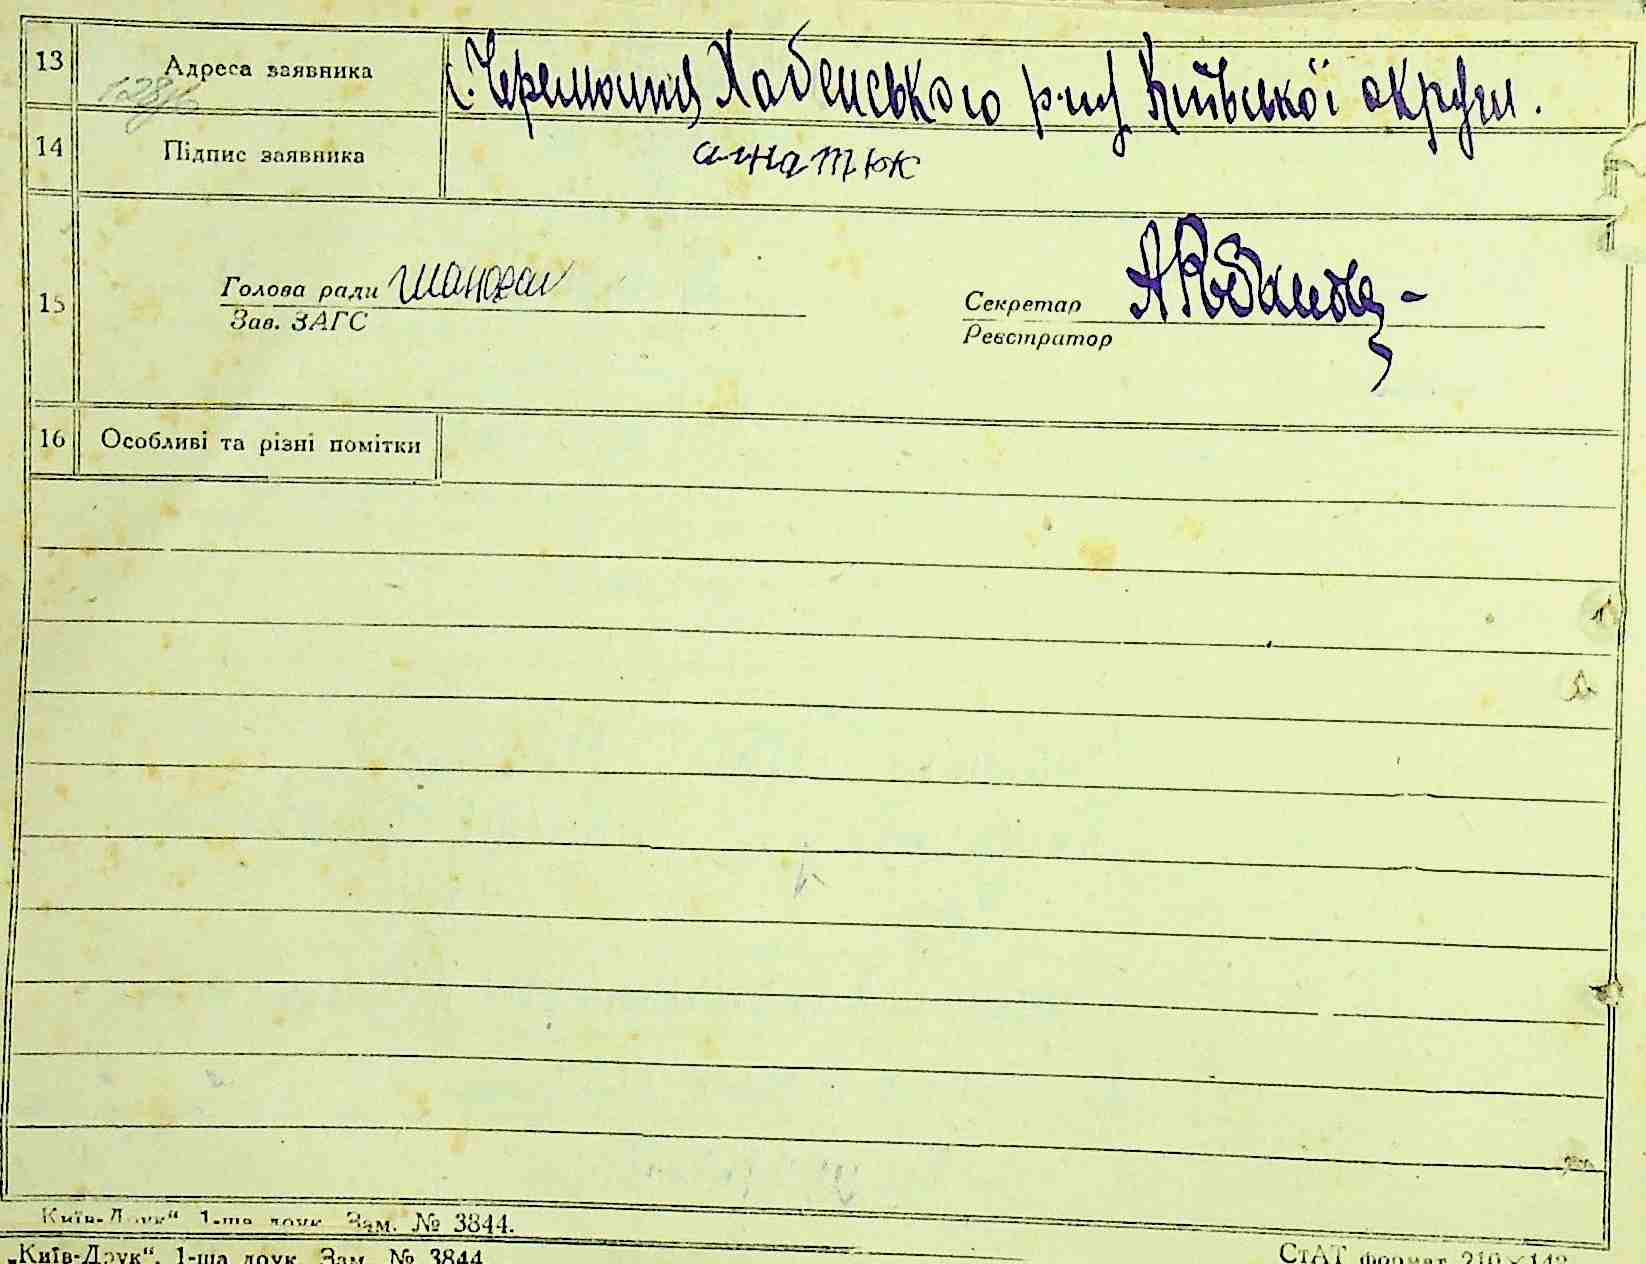 13 Адреса заявника с. Черемошна Хабенського р-ну Київської округи.
14 Підпис заявника
15 Голова ради Секретар
Зав. ЗАГС Реєстратор
16 Особливі та різні помітки
Київ-Друк“ 1-ша друк. Зам. № 3844.
„Київ-Друк“, 1-ша друк. Зам. № 3844 СтАТ формат 210×142